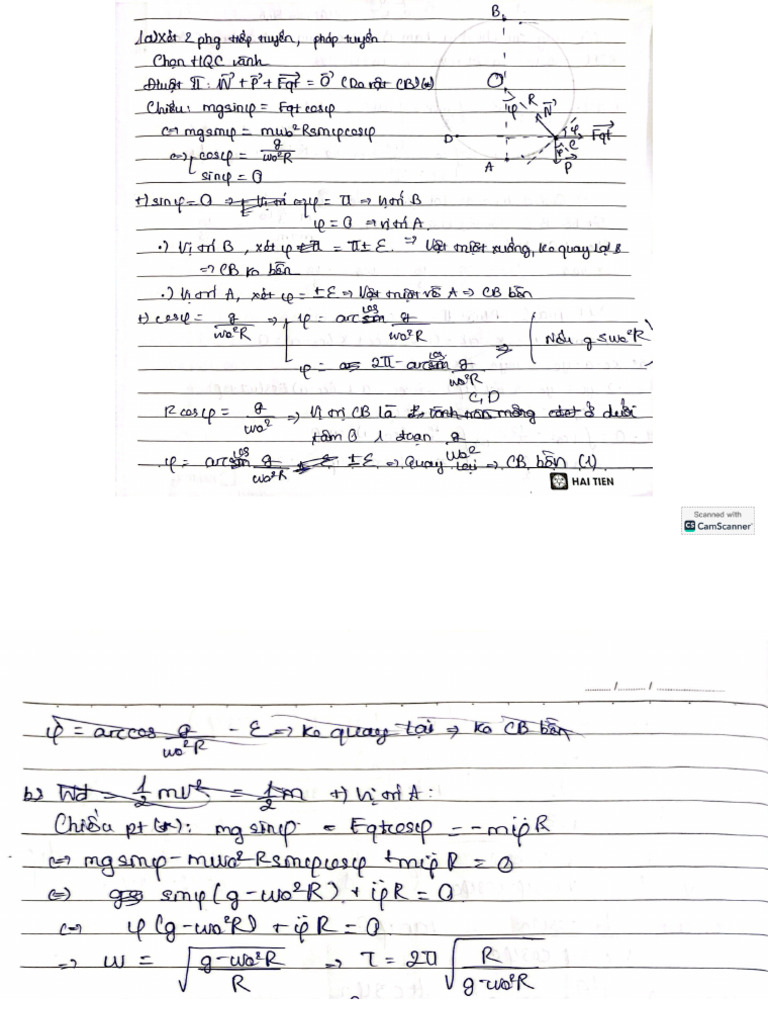 B
1a) Xét 2 phg tiếp tuyến, pháp tuyến
Chọn HQC vành
Đluật II: N + P + Fqt = 0 (Do vật CB) (*)
Chiếu: mgsinφ = Fqt cosφ
O
φ R N
⇔ mgsinφ = mω₀²Rsinφcosφ
D φ C Fqt
⇔ cosφ = g/ω₀²R
sinφ = 0
A P
+) sinφ = 0 ⇒ φ = π ⇒ vị trí B
φ = 0 ⇒ vị trí A.
.) Vị trí B, xét φ = π ± ε. ⇒ Vật trượt xuống, ko quay lại B
⇒ CB ko bền
.) Vị trí A, xét φ = ± ε ⇒ Vật trượt về A ⇒ CB bền
+) cosφ = g/ω₀²R ⇒ φ = arccos g/ω₀²R
φ = 2π - arccos g/ω₀²R ⇒ (Nếu g ≤ ω₀²R)
C, D
Rcosφ = g/ω₀² ⇒ Vị trí CB là ở dưới
tâm O 1 đoạn g/ω₀²
φ = arccos g/ω₀²R ± ε ⇒ Quay lại ⇒ CB bền (1)
HAI TIEN
Scanned with
CS CamScanner
........../........./ ......................
φ = arccos g/ω₀²R - ε ⇒ Ko quay lại ⇒ ko CB bền
b) Wđ = 1/2 mv² = 1/2 m +) Vị trí A:
Chiếu pt (*): mgsinφ - Fqtcosφ = -mφ̈R
⇔ mgsinφ - mω₀²Rsinφcosφ + mφ̈R = 0
⇔ sinφ(g - ω₀²R) + φ̈R = 0
⇔ φ(g - ω₀²R) + φ̈R = 0
⇒ ω = √((g - ω₀²R)/R) ⇒ T = 2π√(R/(g - ω₀²R))